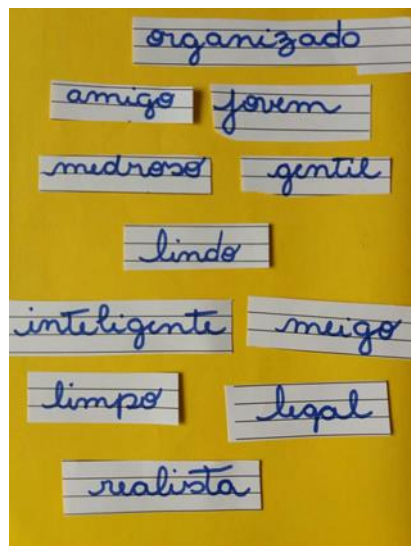 organizado
amigo jovem
medroso gentil
lindo
inteligente meigo
limpo legal
realista